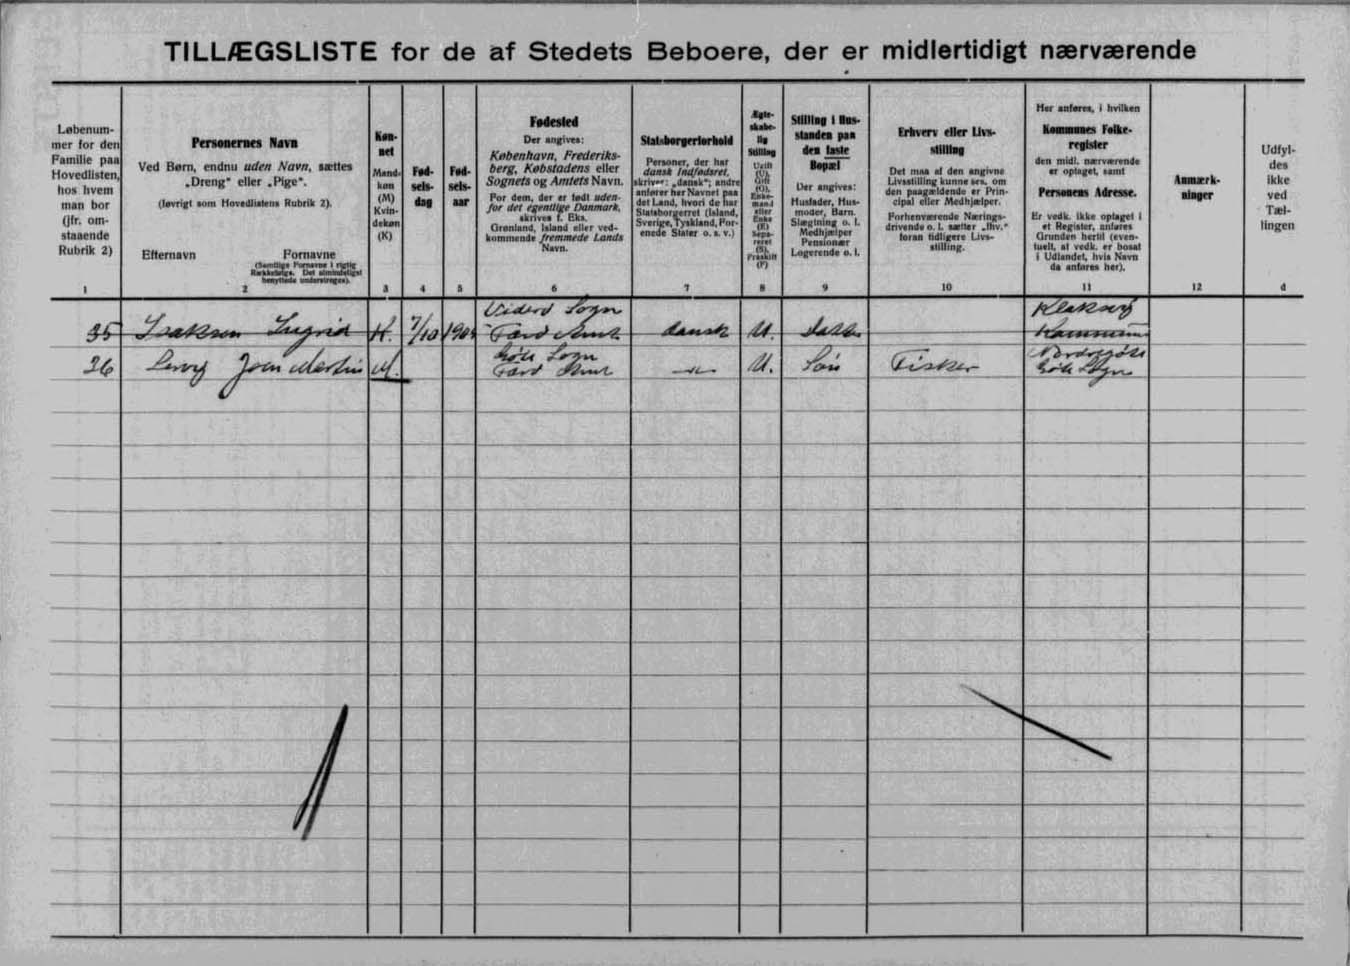 TILLÆGSLISTE for de af Stedets Beboere, der er midlertidigt nærværende
Løbenum-
mer for den
Familie paa
Hovedlisten,
hos hvem
man bor
(jfr. om-
staaende
Rubrik 2)
1
Personernes Navn
Ved Børn, endnu uden Navn, sættes
„Dreng" eller „Pige".
(Iøvrigt som Hovedlistens Rubrik 2).
Efternavn Fornavne
(Samtlige Fornavne i rigtig
Rækkefølge. Det almindeligst
benyttede understreges).
2
Køn-
net
Mand-
køn
(M)
Kvin-
dekøn
(K)
3
Fød-
sels-
dag
4
Fød-
sels-
aar
5
Fødested
Der angives:
København, Frederiks-
berg, Købstadens eller
Sognets og Amtets Navn.
For dem, der er født uden-
for det egentlige Danmark,
skrives f. Eks.
Grønland, Island eller ved-
kommende fremmede Lands
Navn.
6
Statsborgerforhold
Personer, der har
dansk Indfødsret,
skriver: „dansk"; andre
anfører her Navnet paa
det Land, hvori de har
Statsborgerret (Island,
Sverige, Tyskland, For-
enede Stater o. s. v.)
7
Ægte-
skabe-
lig
Stilling
Ugift
(U),
Gift
(G),
Enke-
mand
eller
Enke
(E)
Sepa-
reret
(S),
Fraskilt
(F)
8
Stilling i Hus-
standen paa
den faste
Bopæl
Der angives:
Husfader, Hus-
moder, Barn,
Slægtning o. l.
Medhjælper
Pensionær
Logerende o. l.
9
Erhverv eller Livs-
stilling
Det maa af den angivne
Livsstilling kunne ses, om
den paagældende er Prin-
cipal eller Medhjælper.
Forhenværende Nærings-
drivende o. l. sætter „fhv."
foran tidligere Livs-
stilling.
10
Her anføres, i hvilken
Kommunes Folke-
register
den midl. nærværende
er optaget, samt
Personens Adresse.
Er vedk. ikke optaget i
et Register, anføres
Grunden hertil (even-
tuelt, at vedk. er bosat
i Udlandet, hvis Navn
da anføres her).
11
Anmærk-
ninger
12
Udfyl-
des
ikke
ved
Tæl-
lingen
d
Viderø Sogn Klaksvig
35 Isaksen Ingrid K. 7/10 Færø Amt dansk U. Kommune
Gøte Sogn
26 Joen Martin M. Færø Amt U. Søn Fisker Gøte Sogn